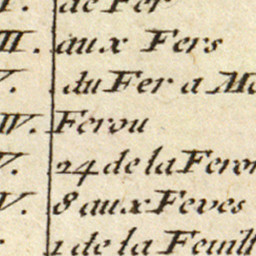 I. de Fer
II. aux Fers
V. du Fer a Mo
IV. Ferou
V. 24 de la Feron
V. 8 aux Feves
1 de la Feuill